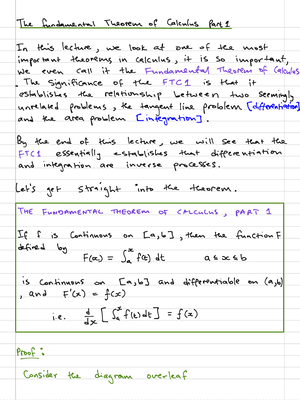 The Fundamental Theorem of Calculus Part 1
In this lecture, we look at one of the most
important theorems in calculus, it is so important,
we even call it the Fundamental Theorem of Calculus
The significance of the FTC1 is that it
establishes the relationship between two seemingly
unrelated problems, the tangent line problem [differentiation]
and the area problem [integration].
By the end of this lecture, we will see that the
FTC1 essentially establishes that differentiation
and integration are inverse processes.
Let's get straight into the theorem.
THE FUNDAMENTAL THEOREM OF CALCULUS, PART 1
If f is continuous on [a,b], then the function F
defined by
F(x) = ∫ₐˣ f(t) dt a ≤ x ≤ b
is continuous on [a,b] and differentiable on (a,b)
, and F'(x) = f(x)
i.e. d/dx [∫ₐˣ f(t) dt] = f(x)
Proof:
Consider the diagram overleaf